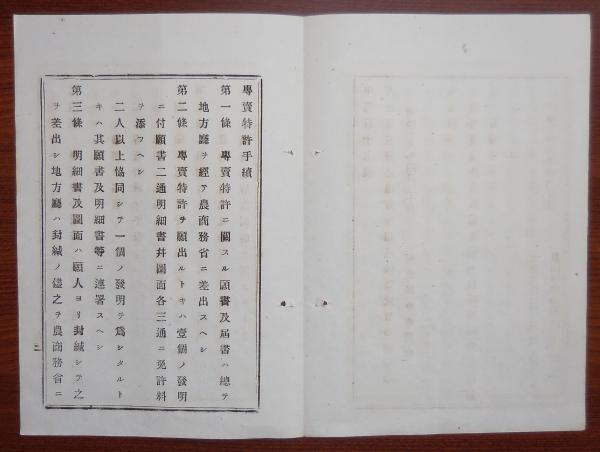 專賣特許手續
第一條 專賣特許ニ關スル願書及屆書ハ總テ
地方廳ヲ經テ農商務省ニ差出スヘシ
第二條 專賣特許ヲ願出ルトキハ壹個ノ發明
ニ付願書二通明細書幷圖面各三通ニ免許料
ヲ添フヘシ
二人以上協同シテ一個ノ發明ヲ爲シタルト
キハ其願書及明細書等ニ連署スヘシ
第三條 明細書及圖面ハ願人ヨリ封緘シテ之
ヲ差出シ地方廳ハ封緘ノ儘之ヲ農商務省ニ
二